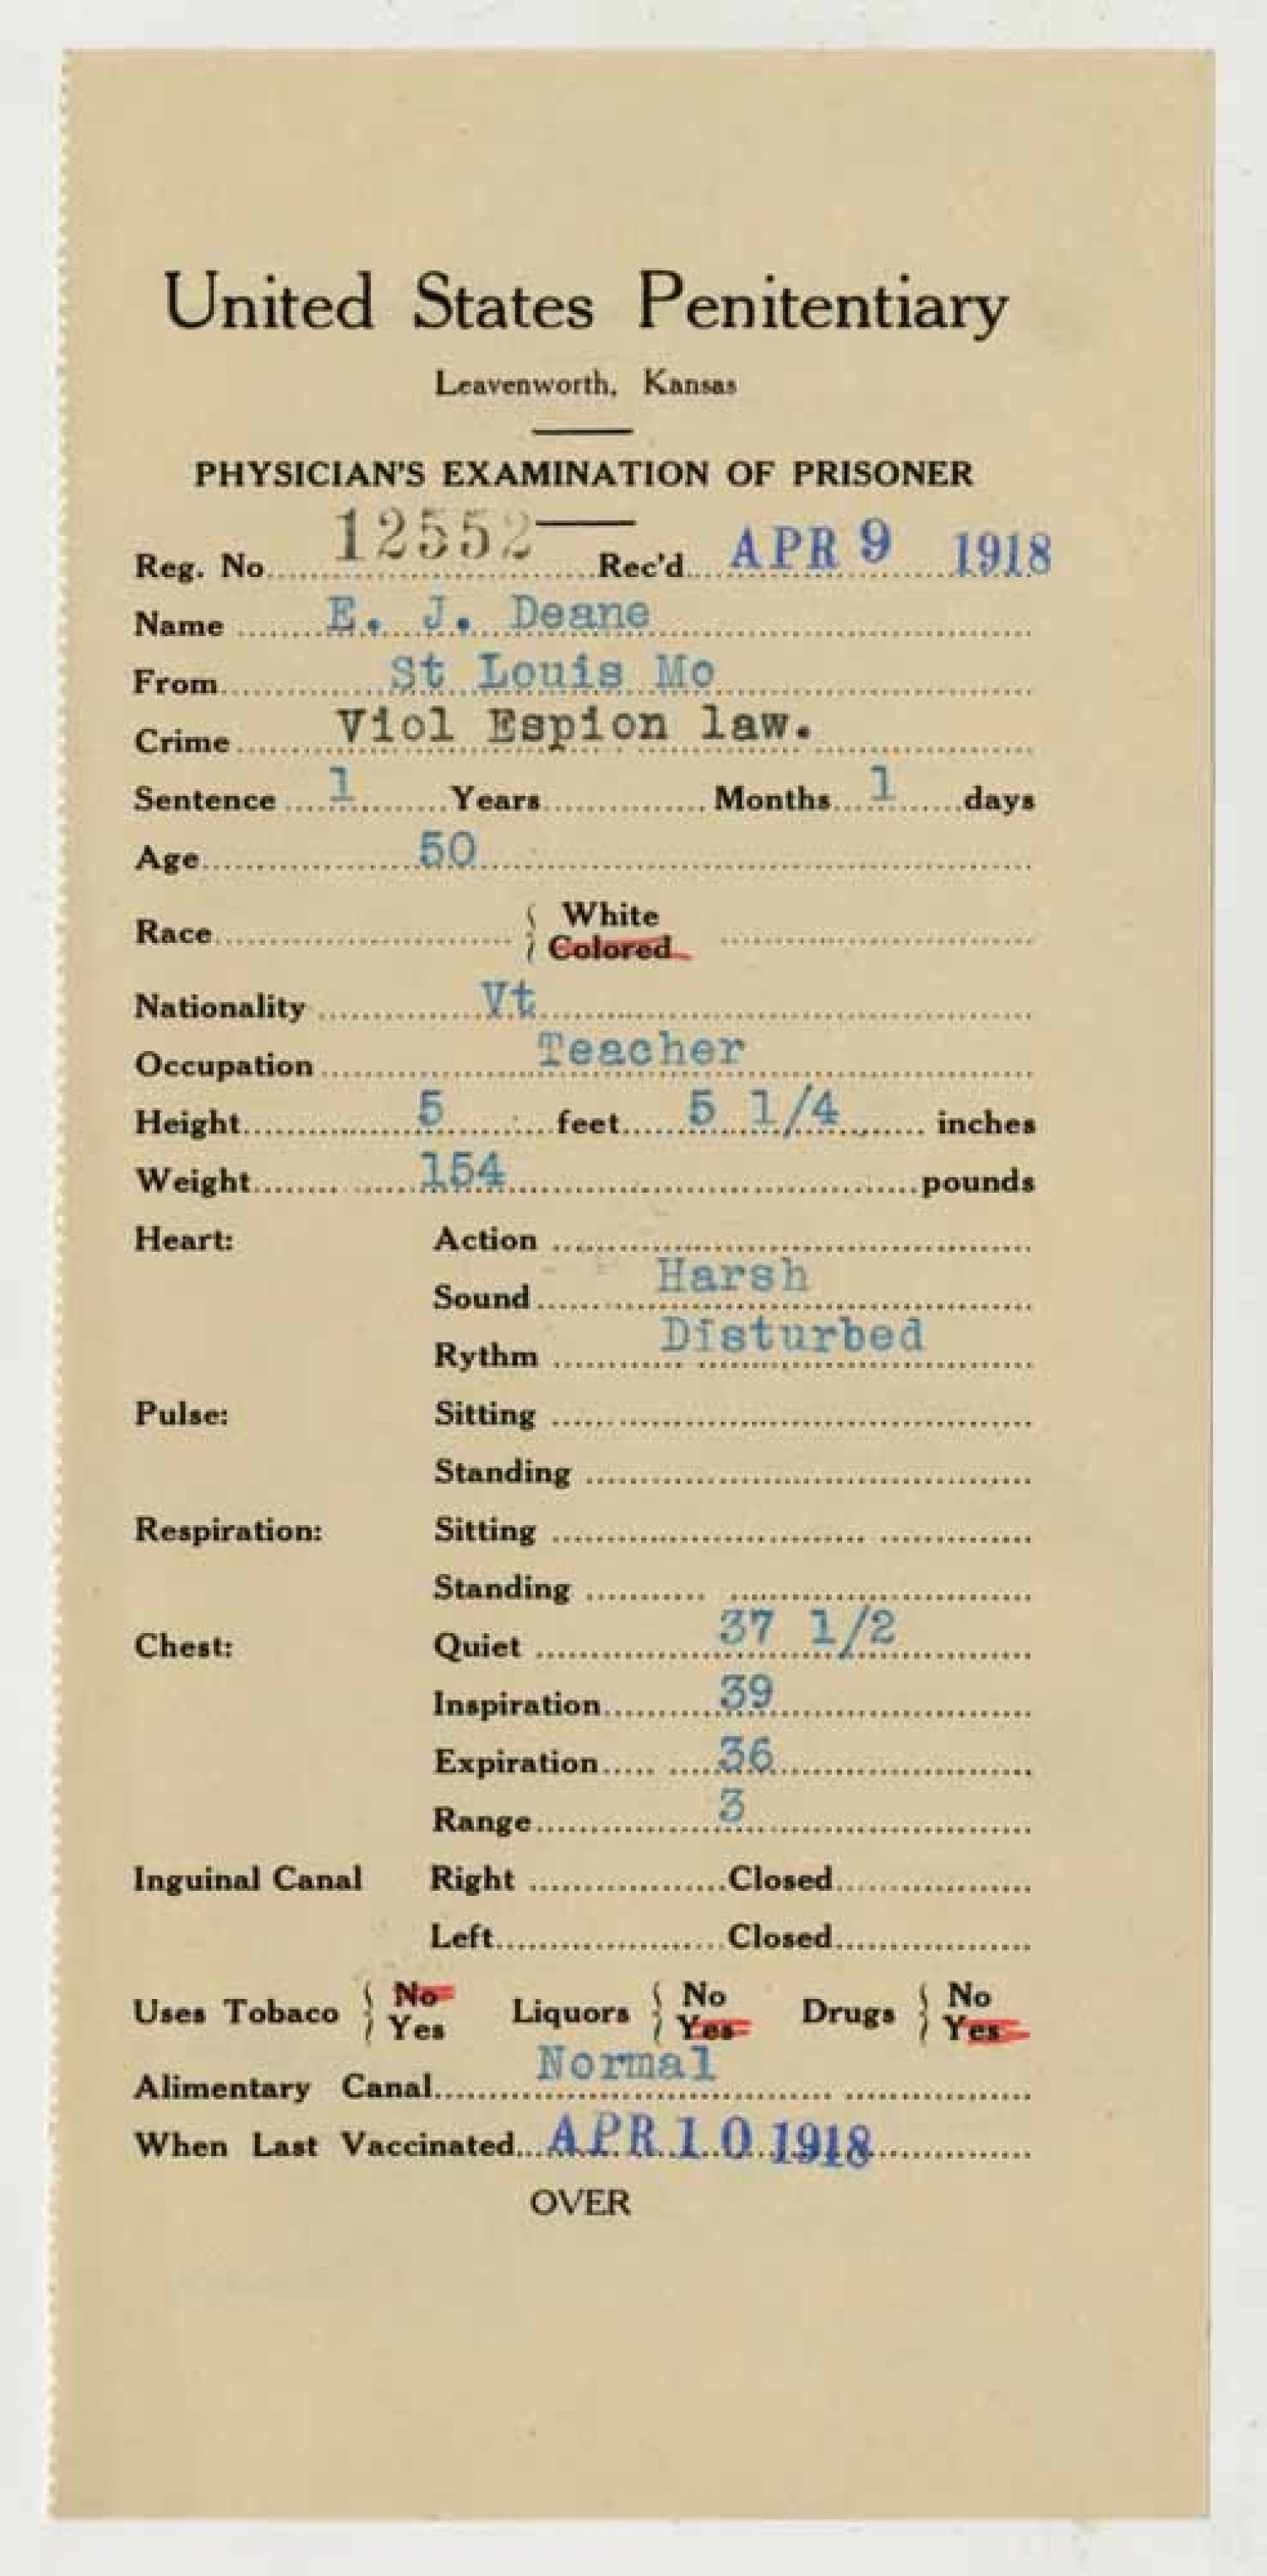 United States Penitentiary
Leavenworth, Kansas
PHYSICIAN'S EXAMINATION OF PRISONER
Reg. No. 12552 Rec'd. APR 9 1918
Name E. J. Deane
From St Louis Mo
Crime Viol Espion law.
Sentence 1 Years Months 1 days
Age 50
Race { White
Colored
Nationality Vt
Occupation Teacher
Height 5 feet 5 1/4 inches
Weight 154 pounds
Heart: Action
Sound Harsh
Rythm Disturbed
Pulse: Sitting
Standing
Respiration: Sitting
Standing
Chest: Quiet 37 1/2
Inspiration 39
Expiration 36
Range 3
Inguinal Canal Right Closed
Left Closed
Uses Tobaco { No Yes Liquors { No Yes Drugs { No Yes
Alimentary Canal Normal
When Last Vaccinated APR 10 1918
OVER